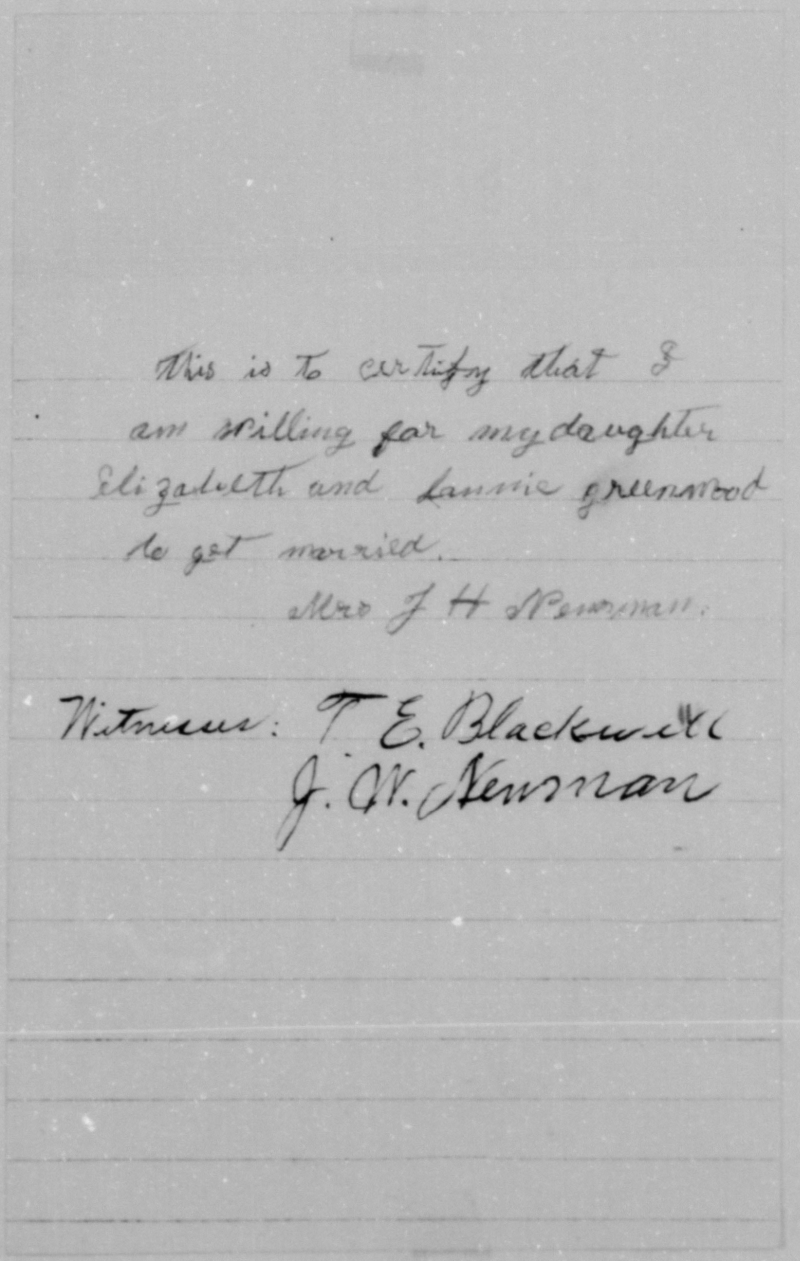 this is to certify that I
am willing for my daughter
Elizabeth and Lannie greenwood
to get married.
Mrs J H Newman.
Witnesses: T E. Blackwell
J. W. Newman